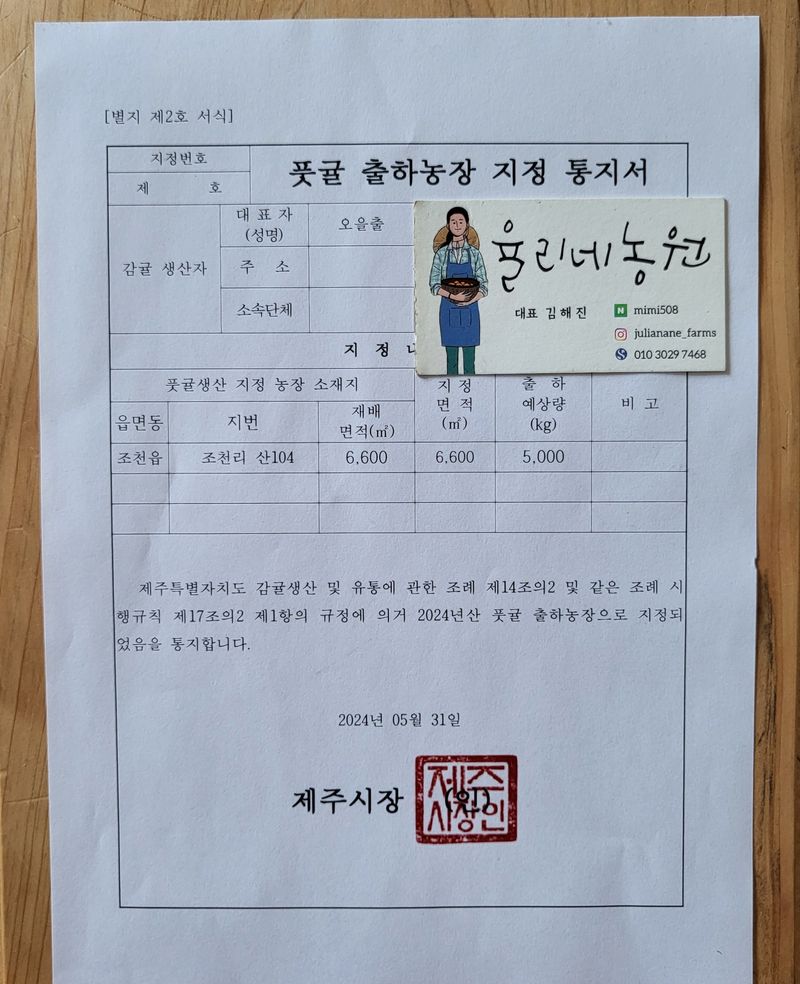 [별지 제2호 서식]
지정번호
제 호
풋귤 출하농장 지정 통지서
감귤 생산자
대 표 자
(성명)
오을출
주 소
소속단체
율리네농원
대표 김해진
N mimi508
julianane_farms
010 3029 7468
지 정
풋귤생산 지정 농장 소재지
읍면동
지번
재배
면적(㎡)
지 정
면 적
(㎡)
출 하
예상량
(kg)
비 고
조천읍 조천리 산104 6,600 6,600 5,000
제주특별자치도 감귤생산 및 유통에 관한 조례 제14조의2 및 같은 조례 시
행규칙 제17조의2 제1항의 규정에 의거 2024년산 풋귤 출하농장으로 지정되
었음을 통지합니다.
2024년 05월 31일
제주시장 (인)
제주
시장인